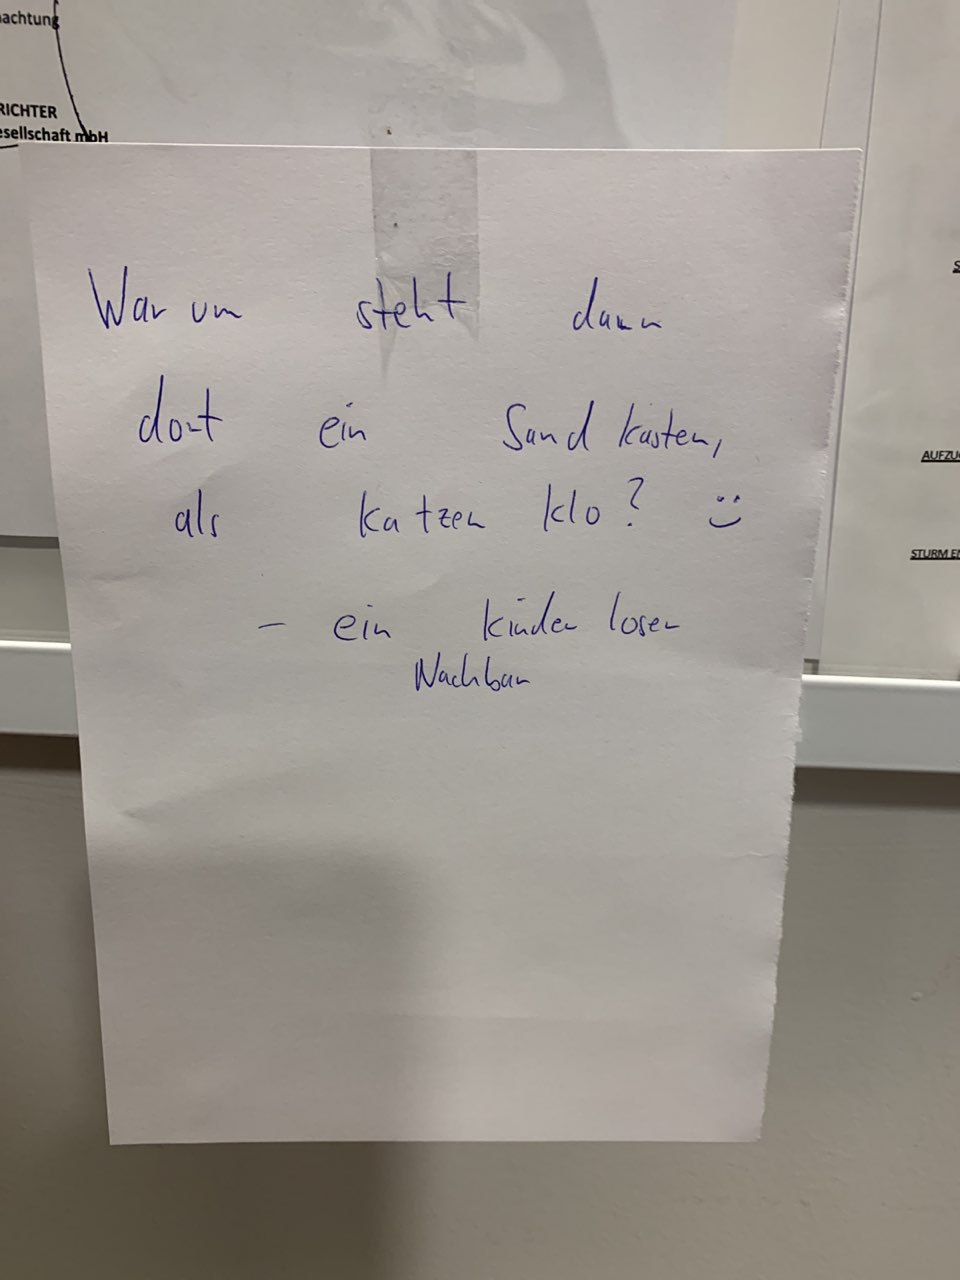 achtung
RICHTER
esellschaft mbH
Warum steht dann
dort ein Sandkasten,
als Katzenklo? :)
- ein kinderloser
Nachbar
AUFZU
STURM EN